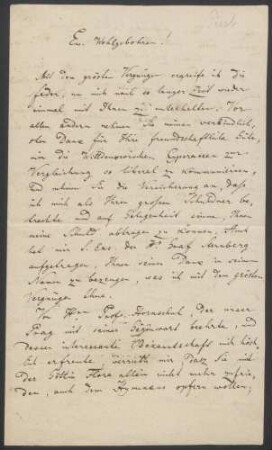 Ew. Wohlgebohren!
Mit dem grösten Vergnügen ergreife ich die
Feder, um mich nach so langer Zeit wieder
einmal mit Ihnen zu unterhalten. Vor
allen andern nehmen Sie meinen verbindlich
sten Dank für Ihre freundschaftliche Güte,
mir die Willdenowischen
Vergleichung so liberal zu kommuniziren,
und nehmen Sie die Versicherung an, dass
ich mich als Ihren grossen Schuldner be
trachte und auf Gelegenheit sinne, Ihnen
meine Schuld abtragen zu können. Auch
hat mir S. Exc. der Hr. Graf Sternberg
aufgetragen, Ihnen seinen Dank in seinem
Namen zu bezeugen, was ich mit dem grösten
Vergnügen thue.
Von Hrn. Prof. Hornschuh, der unser
Prag mit seiner Gegenwart beehrte, und
dessen interessante Bekanntschaft mich höch
lich erfreute, dass Sie mit
der Göttin Flora allein nicht mehr zufrie
den, auch dem Hymenaeus opfern wollen,